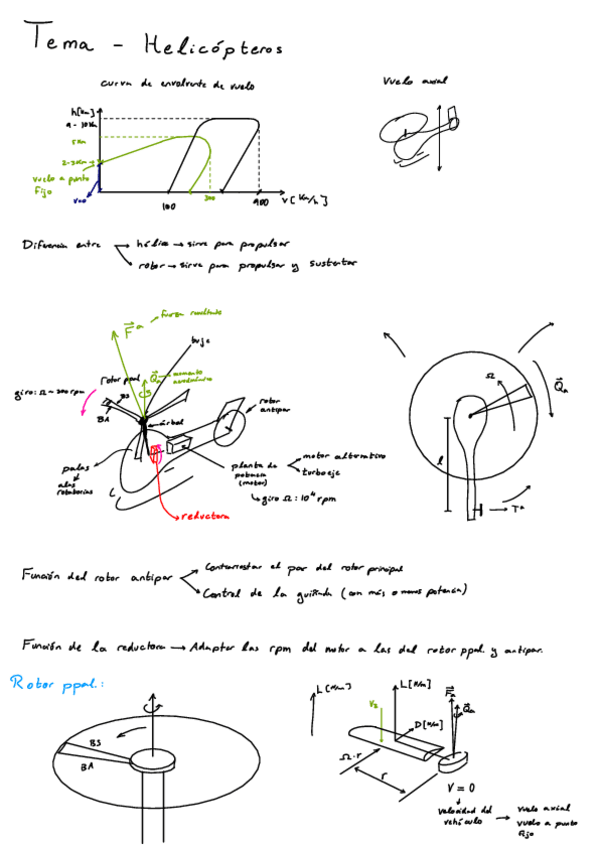 Tema - Helicópteros
curva de envolvente de vuelo
Vuelo axial
h[Km]
9-10Km
5Km
2-3Km
vuelo a punto
fijo
V=0
100
300
900
V [Km/h]
Diferencia entre → hélice → sirve para propulsar
rotor → sirve para propulsar y sustentar
F^a fuerza resultante
buje
rotor ppal
Q_a momento aerodinámico
giro: Ω ~ 300 rpm
BS
BA
árbol
rotor
antipar
palas
alas
rotatorias
planta de
potencia
(motor)
motor alternativo
turboeje
giro Ω: 10⁴ rpm
reductora
Ω
Q_a
l
T^a
Función del rotor antipar
Contrarrestar el par del rotor principal
Control de la guiñada (con más o menos potencia)
Función de la reductora → Adaptar las rpm del motor a las del rotor ppal. y antipar.
Rotor ppal.:
BS
BA
L [N/m]
L [N/m]
D [N/m]
F_a
Q_a
Ω·r
r
V = 0
velocidad del
vehículo
vuelo axial
vuelo a punto
fijo